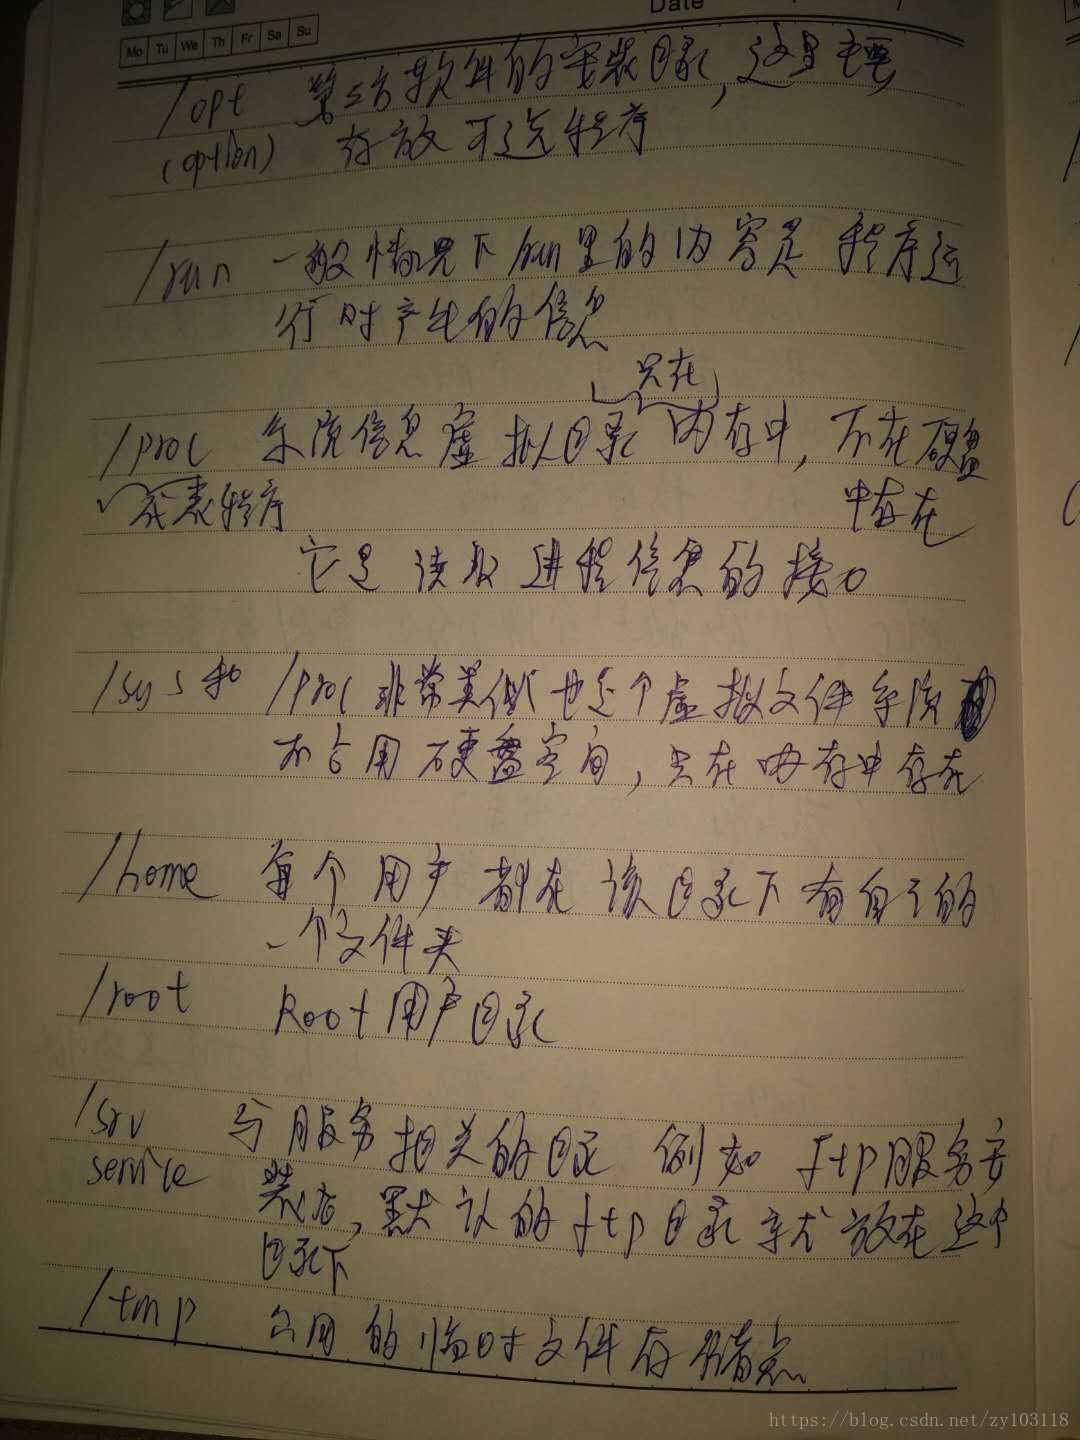 Date
Mo Tu We Th Fr Sa Su
/opt 第三方软件的安装目录，这里主要
(option) 存放可选程序
/run 一般情况下/run里的内容是程序运
行时产生的信息
只在
/proc 系统信息虚拟目录 内存中，不在硬盘
代表程序 中存在
它是读取进程信息的接口
/sys和 /proc非常类似也是个虚拟文件系统
不占用硬盘空间，只在内存中存在
/home 每个用户都在该目录下有自己的
一个文件夹
/root Root用户目录
/srv 与服务相关的目录 例如 ftp服务安
service 装后，默认的ftp目录就放在这个
目录下
/tmp 公用的临时文件存储点
https://blog.csdn.net/zy103118